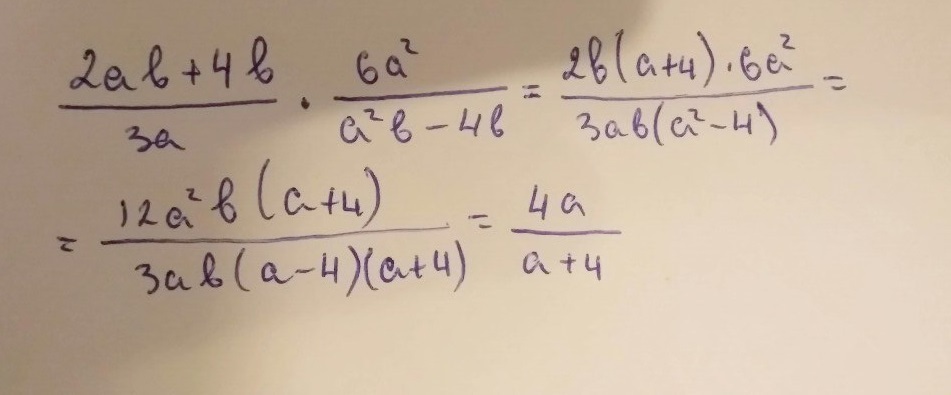 (2ab+4b)/(3a) · (6a²)/(a²b-4b) = (2b(a+4)·6a²)/(3ab(a²-4)) =
= (12a²b(a+4))/(3ab(a-4)(a+4)) = (4a)/(a+4)